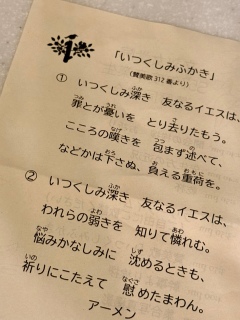 「いつくしみふかき」
（賛美歌312番より）
① いつくしみ深き 友なるイエスは、
罪とが憂いを とり去りたもう。
こころの嘆きを 包まず述べて、
などかは下さぬ、負える重荷を。
② いつくしみ深き 友なるイエスは、
われらの弱きを 知りて憐れむ。
悩みかなしみに 沈めるときも、
祈りにこたえて 慰めたまわん。
アーメン